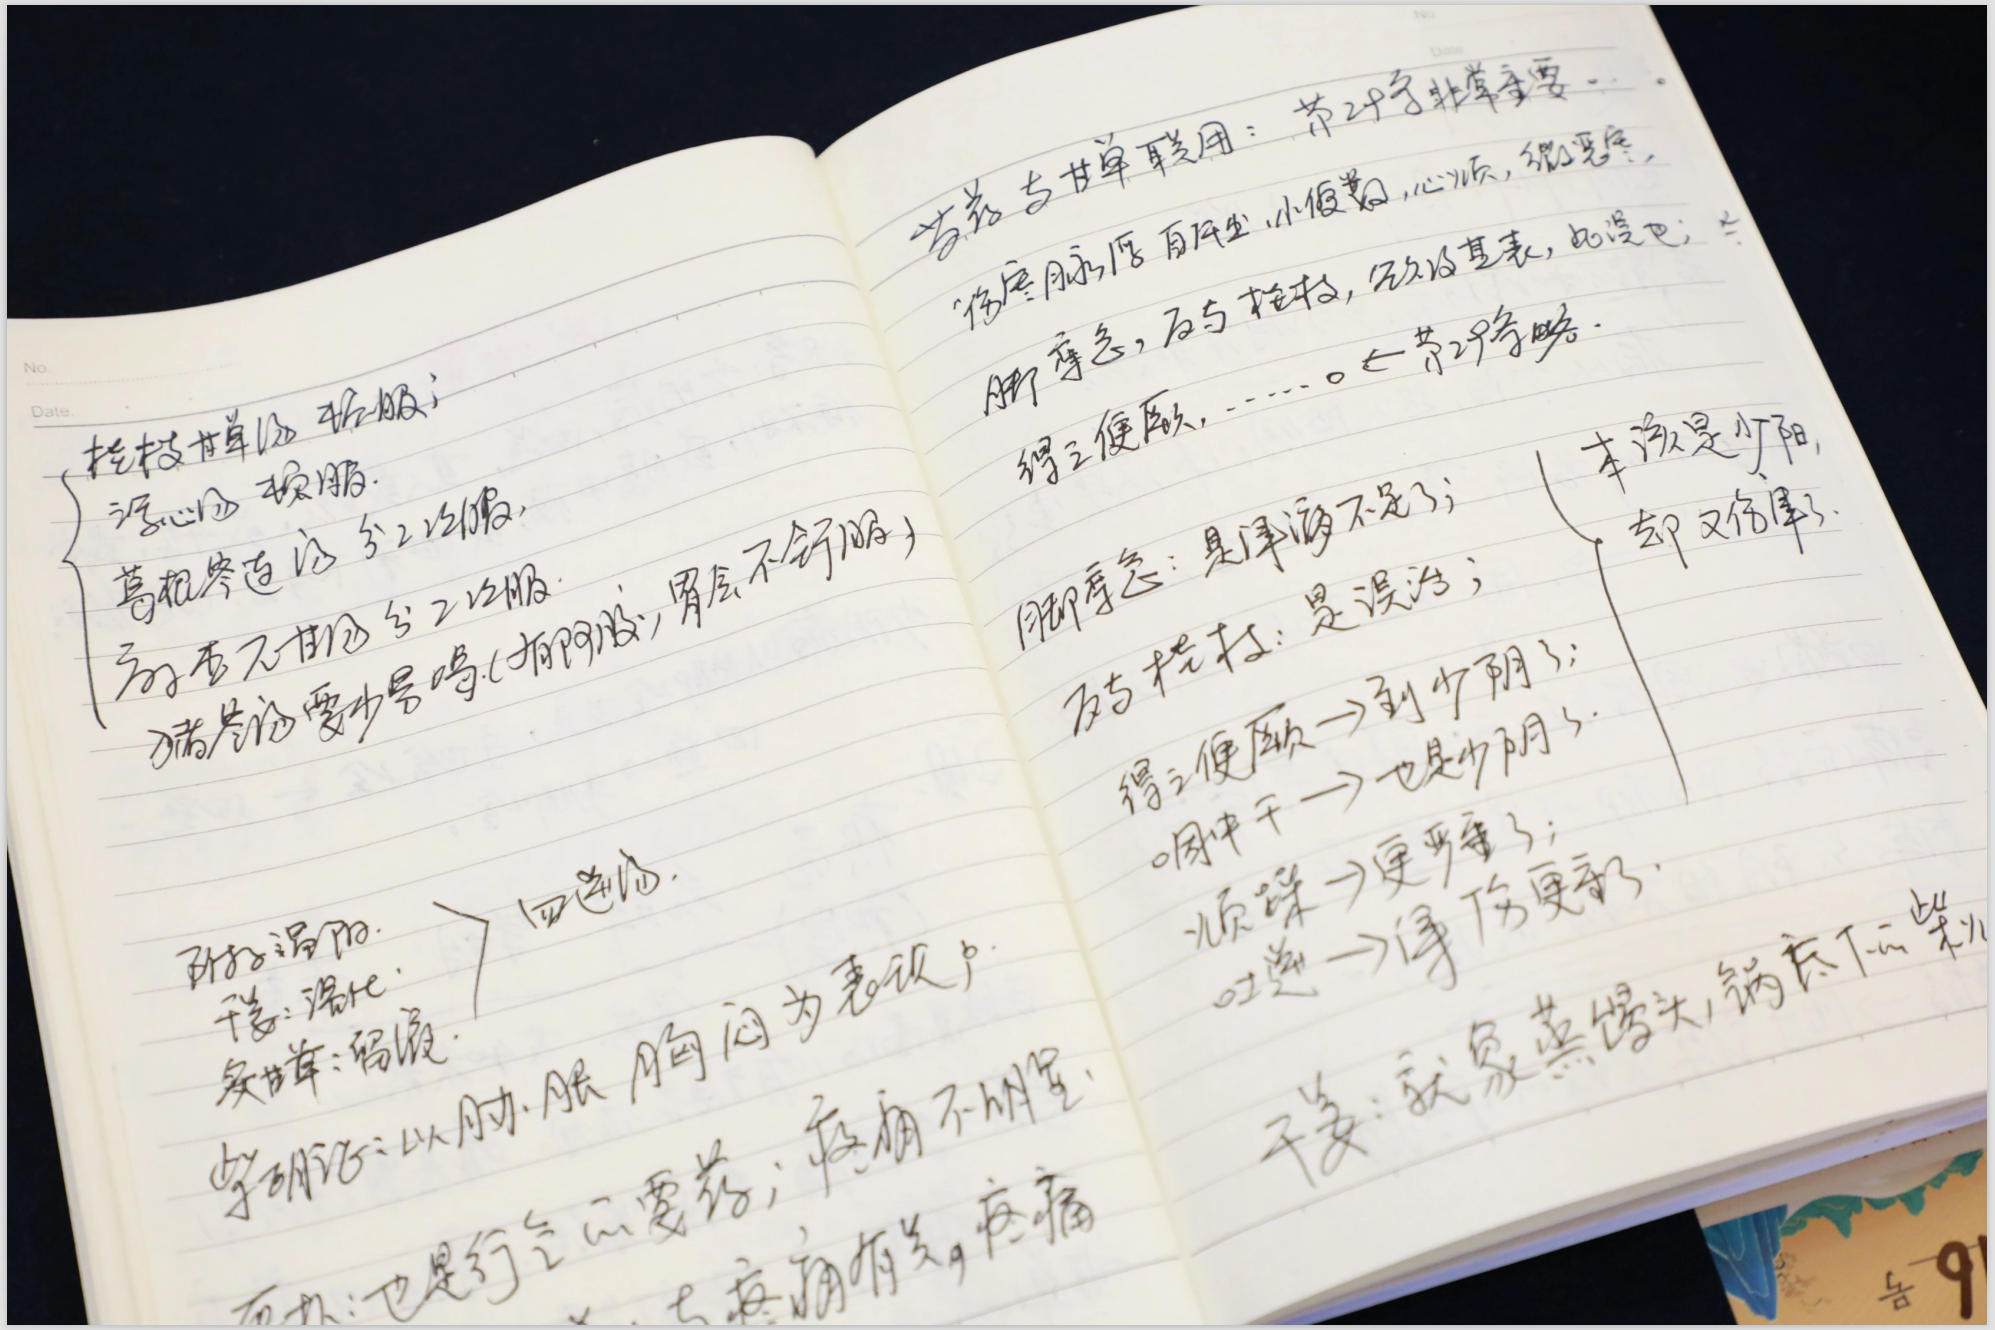 No.
Date.
桂枝甘草汤 顿服；
泻心汤 顿服.
葛根芩连汤 分2次服，
苓桂术甘汤 分2次服.
猪苓汤要少量喝.(有阿胶，胃会不舒服)
附子温阳.
干姜：温化.
炙甘草：缓
四逆汤.
柴胡证：以肋.胀 胸闷为表现；
也是行气的要药；疼痛不明显.
与疼痛有关，疼痛
No
Date
芍药与甘草联用：第29条非常重要...
"伤寒脉浮 自汗出，小便数，心烦，微恶寒，
脚挛急，反与桂枝，欲攻其表，此误也；
得之便厥，......。← 第29条略.
脚挛急：是津液不足了；
反与桂枝：是误治；
得之便厥→到少阴了；
咽中干→也是少阴了.
烦躁→更严重了；
吐逆→津伤更重了.
本该是少阳，
却又伤津了.
干姜：就象蒸馒头，锅底下的柴火